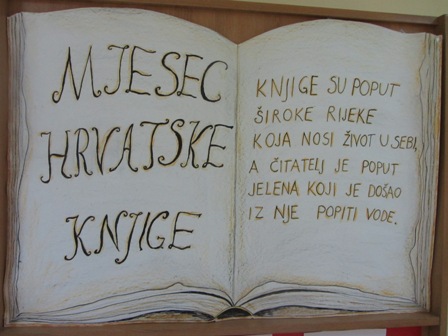 MJESEC
HRVATSKE
KNJIGE
KNJIGE SU POPUT
ŠIROKE RIJEKE
KOJA NOSI ŽIVOT U SEBI,
A ČITATELJ JE POPUT
JELENA KOJI JE DOŠAO
IZ NJE POPITI VODE.